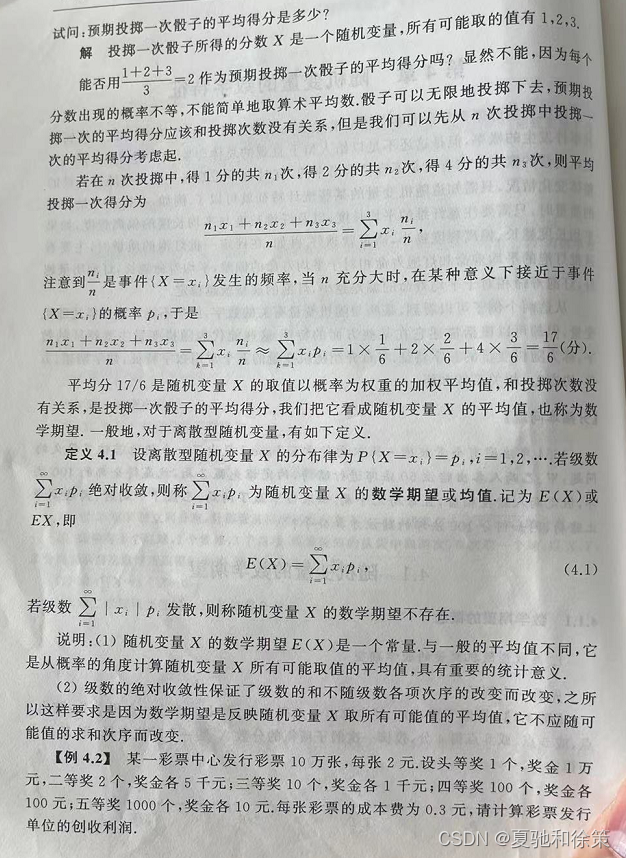 试问:预期投掷一次骰子的平均得分是多少?
解 投掷一次骰子所得的分数 X 是一个随机变量,所有可能取的值有 1,2,3.
能否用 (1+2+3)/3 =2 作为预期投掷一次骰子的平均得分吗? 显然不能,因为每个
分数出现的概率不等,不能简单地取算术平均数.骰子可以无限地投掷下去,预期投
掷一次的平均得分应该和投掷次数没有关系,但是我们可以先从 n 次投掷中投掷一
次的平均得分考虑起.
若在 n 次投掷中,得 1 分的共 n₁次,得 2 分的共 n₂次,得 4 分的共 n₃次,则平均
投掷一次得分为
(n₁x₁+n₂x₂+n₃x₃)/n = ∑_{i=1}^{3} xᵢ nᵢ/n,
注意到 nᵢ/n 是事件{X=xᵢ}发生的频率,当 n 充分大时,在某种意义下接近于事件
{X=xᵢ}的概率 pᵢ,于是
(n₁x₁+n₂x₂+n₃x₃)/n = ∑_{k=1}^{3} xᵢ nᵢ/n ≈ ∑_{k=1}^{3} xᵢpᵢ = 1× 1/6 +2× 2/6 +4× 3/6 = 17/6 (分).
平均分 17/6 是随机变量 X 的取值以概率为权重的加权平均值,和投掷次数没
有关系,是投掷一次骰子的平均得分,我们把它看成随机变量 X 的平均值,也称为数
学期望. 一般地,对于离散型随机变量,有如下定义.
定义 4.1 设离散型随机变量 X 的分布律为 P{X=xᵢ}=pᵢ,i=1,2,⋯.若级数
∑_{i=1}^{∞} xᵢpᵢ 绝对收敛,则称 ∑_{i=1}^{∞} xᵢpᵢ 为随机变量 X 的数学期望或均值.记为 E(X)或
EX,即
E(X)= ∑_{i=1}^{∞} xᵢpᵢ, (4.1)
若级数 ∑_{i=1}^{∞} |xᵢ|pᵢ 发散,则称随机变量 X 的数学期望不存在.
说明:(1) 随机变量 X 的数学期望 E(X)是一个常量.与一般的平均值不同,它
是从概率的角度计算随机变量 X 所有可能取值的平均值,具有重要的统计意义.
(2) 级数的绝对收敛性保证了级数的和不随级数各项次序的改变而改变,之所
以这样要求是因为数学期望是反映随机变量 X 取所有可能值的平均值,它不应随可
能值的求和次序而改变.
【例 4.2】 某一彩票中心发行彩票 10 万张,每张 2 元.设头等奖 1 个,奖金 1 万
元,二等奖 2 个,奖金各 5 千元;三等奖 10 个,奖金各 1 千元;四等奖 100 个,奖金各
100 元;五等奖 1000 个,奖金各 10 元.每张彩票的成本费为 0.3 元,请计算彩票发行
单位的创收利润.
CSDN @夏驰和徐策